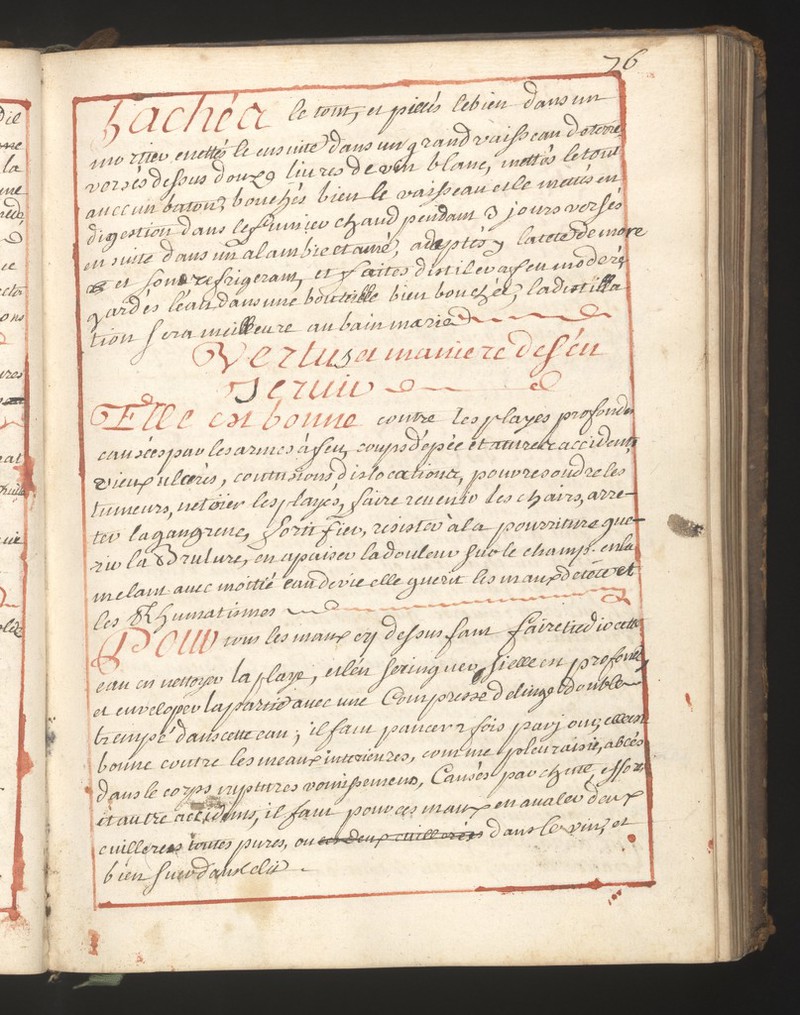 76
hachéz le tout, et piecés lebien dans un
mortier enettés le ensuite dans un grand vaisseau deterre
versés dessus douze livres de vin blanc, mettés le tout
avec un baton, bouchés bien le vaisseau et le mettés en
digestion dans le fumier chaud pendant 3 jours versés
en suite dans un alambic etamé, adaptés y la teste de more
et son refrigerant, et faites distiler a feu moderé
gardés léau dans une bouteille bien bouchée, la distilla
tion sera meilleure au bain marie
Vertus et maniere de s'én
Servir
Elle est bonne contre les playes profondes
causées par les armes à feu, coups dépée et autres accidents
vieux ulceres, contusions dislocations, pour resoudre les
tumeurs, netoier les playes, faire revenir les chairs, arre-
ter la gangrene, fortifier, resister à la pourriture gue-
rir la Brulure, en apaiser la douleur sur le champ. en la
melant avec moitié eau de vie elle guerit les maux de tête et
les Rhumatismes
Pour tous les maux cy dessus faut faire tiedir cette
eau en nettoyer la playe, et l'én seringuer, si elle est profonde
et enveloper la partie avec une Compresse de linge double
trempé dans cette eau; il faut pancer 2 fois par jour; elle est
bonne contre les meaux interieures, comme pleuraisie, abcés
dans le corps ruptures vomissement, Causés par chute, effort
et autre accidens, il faut pour ces maux en avaler deux
cuillerees toutes pures, ou ces deux cuillerées dans le vin, et
bien suer dans le lit